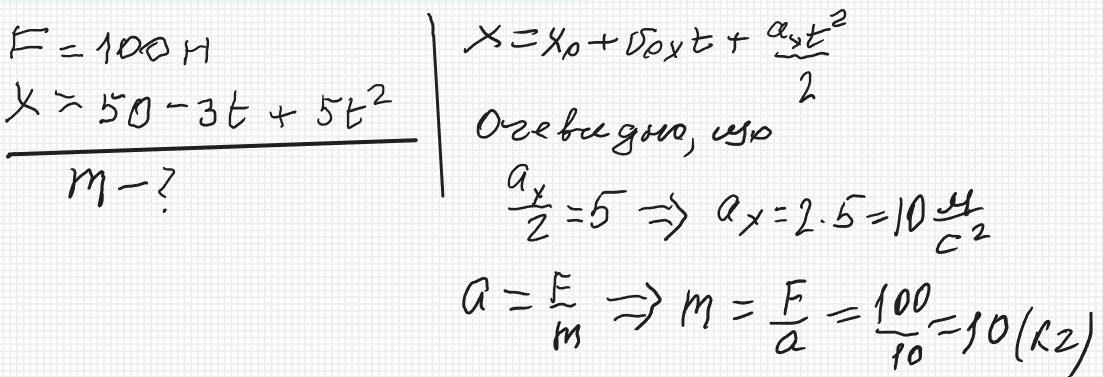 F = 100 Н
x = 50 - 3t + 5t²
m - ?
x = x₀ + υ₀ₓt + aₓt²/2
Очевидно, що
aₓ/2 = 5 ⇒ aₓ = 2·5 = 10 м/с²
a = F/m ⇒ m = F/a = 100/10 = 10 (кг)